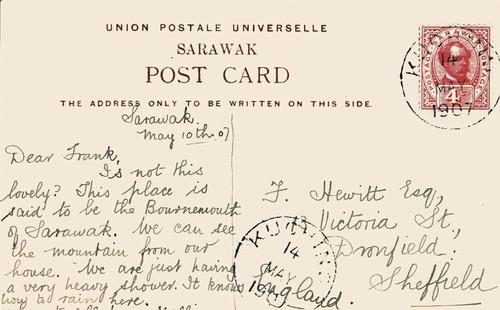 UNION POSTALE UNIVERSELLE
SARAWAK
POST CARD
THE ADDRESS ONLY TO BE WRITTEN ON THIS SIDE.
POSTAGE SARAWAK POSTAGE
4
14
MAY
1907
Sarawak.
May 10th. 07
Dear Frank,
Is not this
lovely? This place is
said to be the Bournemouth
of Sarawak. We can see
the mountain from our
house. We are just having
a very heavy shower. It knows
how to rain here.
F. Hewitt Esq,
Victoria St.,
Dronfield.
Sheffield
England.
14
MAY